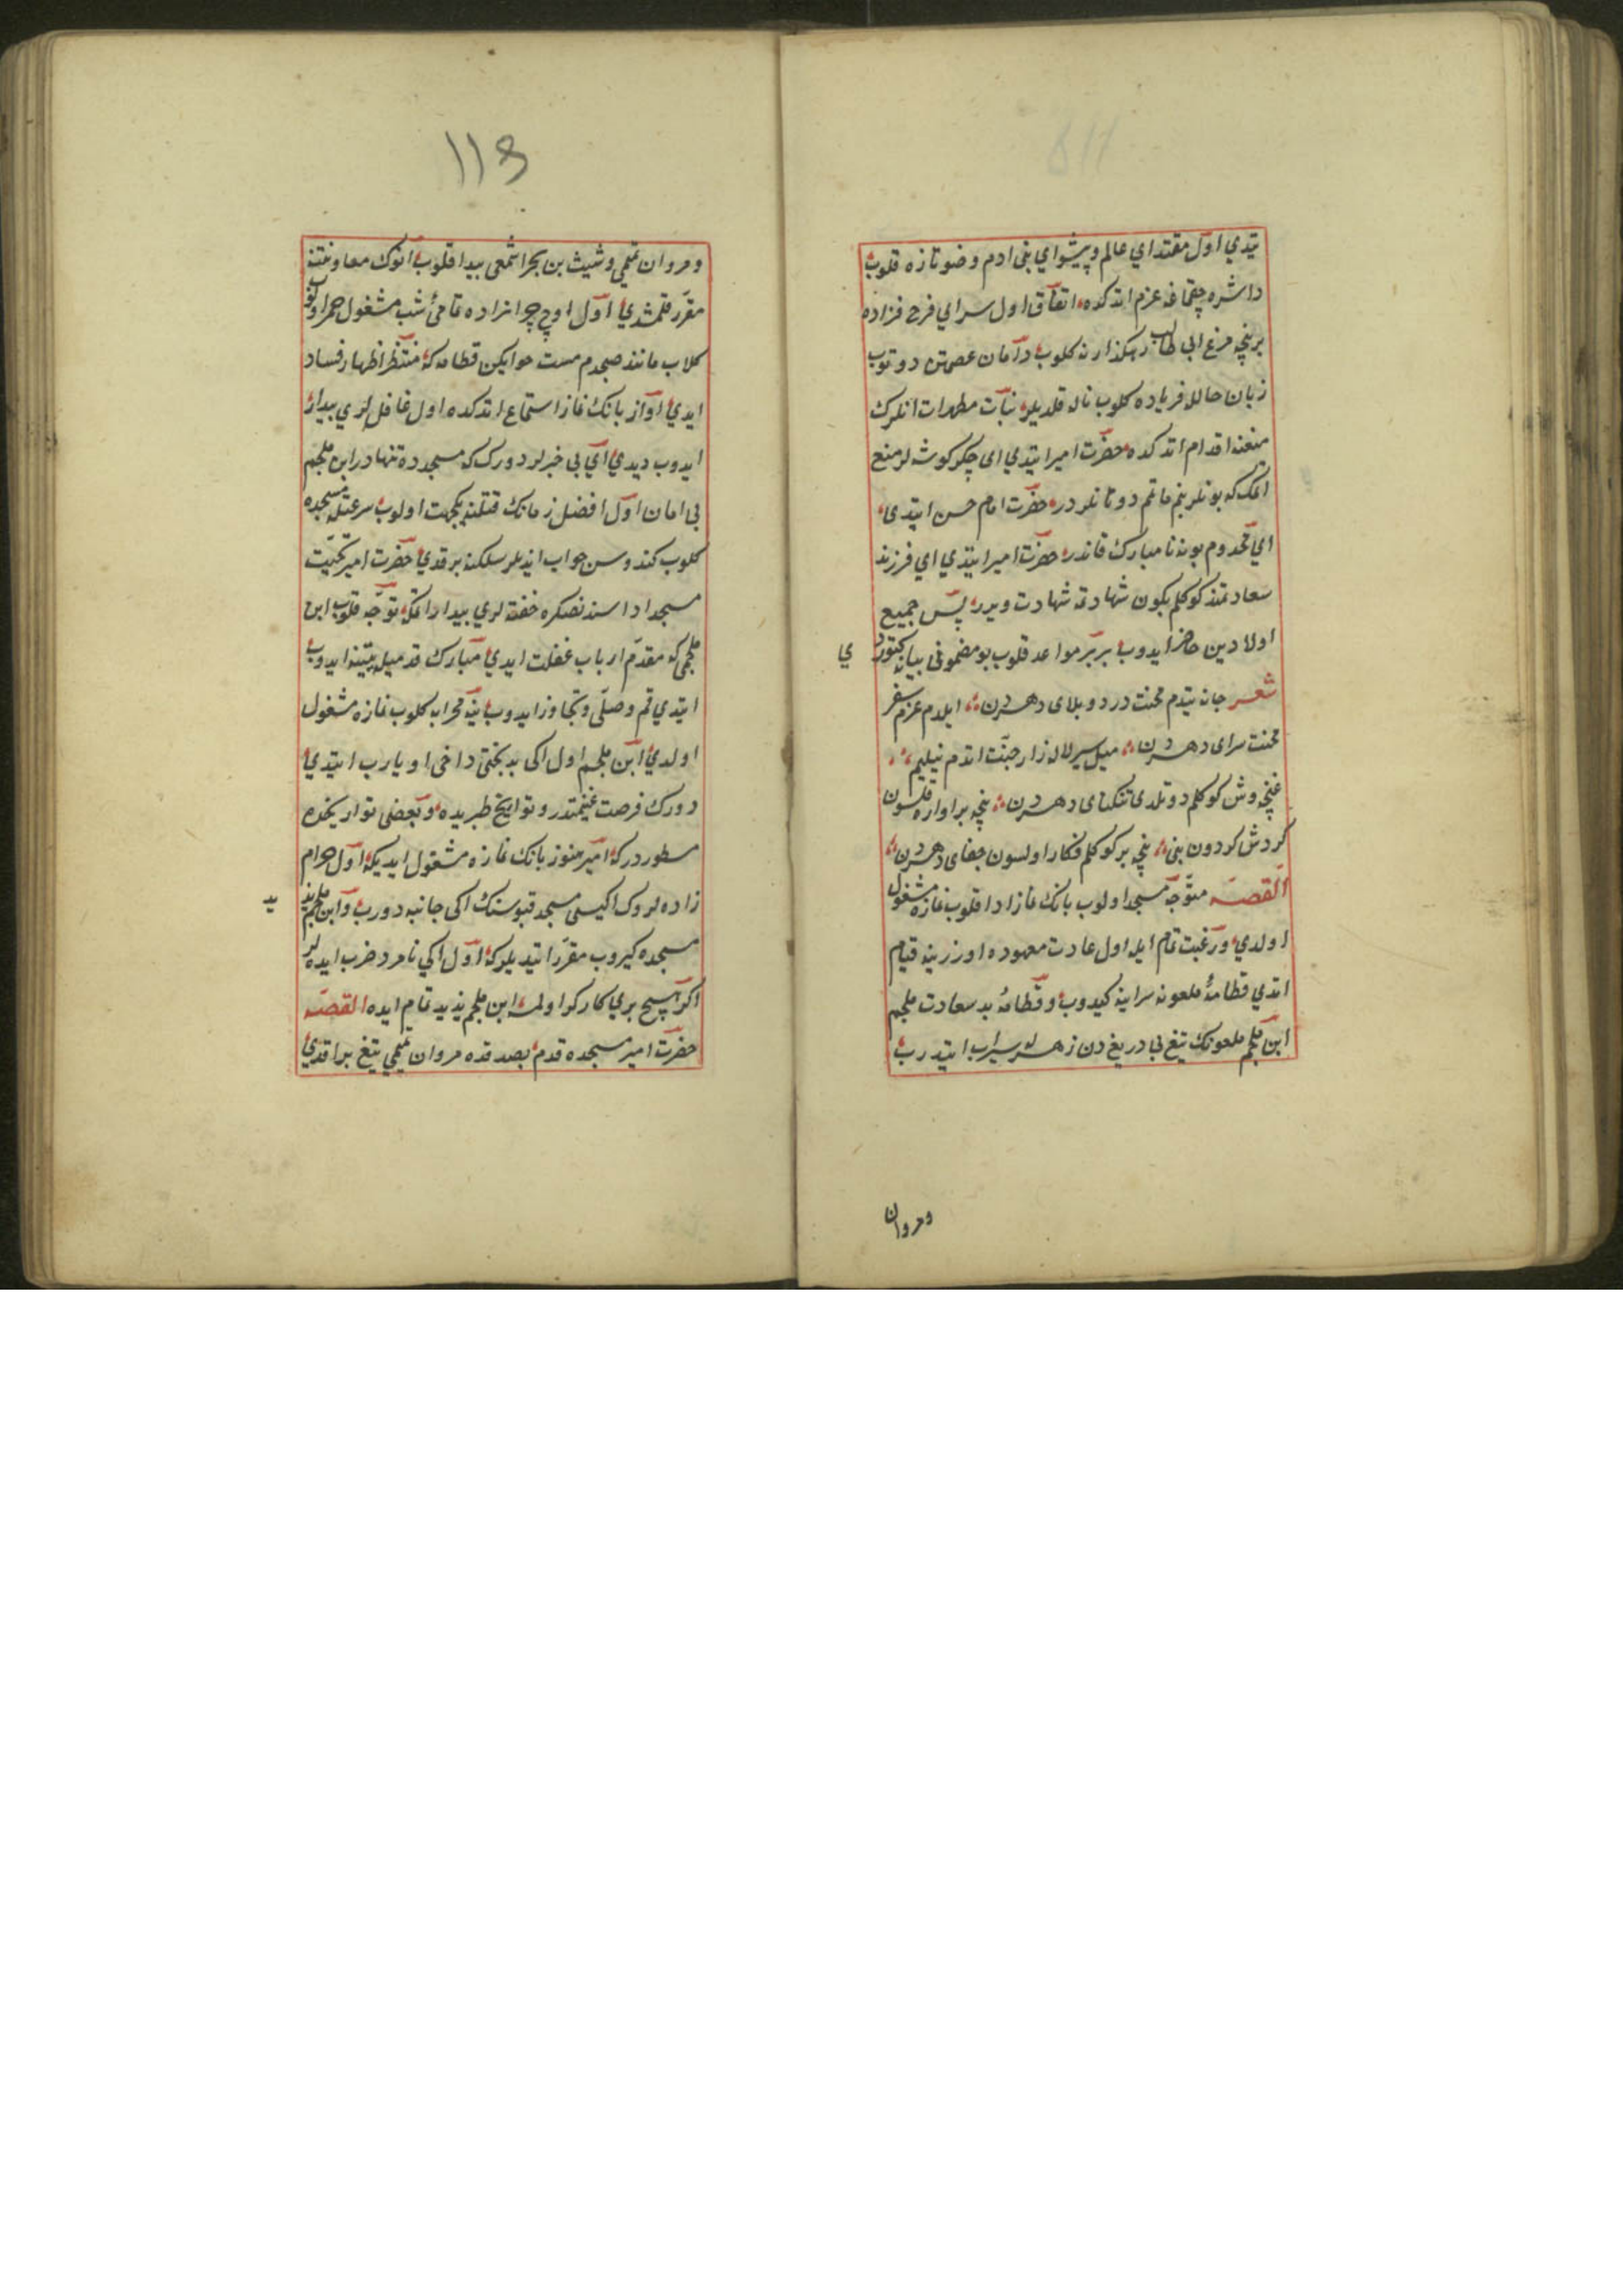 یتدي اول مقتداي عالم و پیشواي بنی ادم وضو تازه قلوب
داشره چقماغه عزم اتدکده اتفاق اول سراي فرح فزاده
برنچه مرغ ابی طالب رهکذارنه کلوب دامان عصمتن دوتوب
زبان حالله فریاده کلوب ناله قلدیلر بنات مطهرات انلرك
منعنه اقدام اتدکده حضرت امیر ایتدي ای جکرکوشه لر منع
اتمك که بونلر بنم ماتمم دوتانلردر حضرت امام حسن ایتدی
اي مخدوم بو نه نامبارك فالدر حضرت امیر ایتدي اي فرزند
سعادتمند کوکلم بکون شهادتمه شهادت ویرر پس جمیع
اولادین حاضر ایدوب بربر مواعد قلوب بو مضمونی بیانه کتوردی
شعر جانه یتدم محنت درد و بلای دهردن ایلدم عزم سفر
محنت سرای دهردن میل سیر لاله زار جنت اتدم نیلیم
غنچه وش کوکلم دوتلدی تنکنای دهردن نیچه بر اواره قلسون
کردش کردون بنی نیچه بر کوکلم فکار اولسون جفای دهردن
القصه متوجه مسجد اولوب بانك نماز ادا قلوب نمازه مشغول
اولدي و رغبت تمام ایله اول عادت معهوده اوزرینه قیام
اتدي قطامهٔ ملعونه سراینه کیدوب و قطامهٔ بد سعادت ملجم
ابن ملجم ملعونك تیغ بی دریغ دن زهرله سیراب ایتدرب
ومروان
113
ومروان تمیمی و شیث بن بجر اشجعی پیدا قلوب انوك معاونتنه
مقرر قلمشدي اول اوچ حرامزاده تمامئ شب مشغول خمر اولوب
کلاب مانند صبحدم مست خوابکن قطامه که منتظر اظهار فساد
ایدي اواز بانك نماز استماع اتدکده اول غافللري بیدار
ایدوب دیدي اي بی خبرلر دورك که مسجدده تنهادر ابن ملجم
بی امان اول افضل زمانك قتلنه یکجهت اولوب سرعتله مسجده
کلوب کندوسن خواب ایدنلر سلکنه برقدي حضرت امیر تحیت
مسجد اداسندنصکره خفته لري بیدار اتمکه توجه قلوب ابن
ملجمی که مقدم ارباب غفلت ایدي مبارك قدمیله متنبه ایدوب
ایتدي قم وصلی و تجاوز ایدوب ینه محرابه کلوب نمازه مشغول
اولدي ابن ملجم اول اکی بدبختی داخی اویارب ایتدي
دورك فرصت غنیمتدر و تواریخ طبریده و بعضی تواریخده
مسطوردرکه امیر هنوز بانك نمازه مشغول ایدیکه اول حرام
زاده لروك ایکیسی مسجد قپوسنك اکی جانبه دورب و ابن ملجم
مسجده کیروب مقرر ایتدیلرکه اول اکي نامرد ضرب ایده لر
اکر هیچ بري کارکر اولمسه ابن ملجم پلید تمام ایده القصه
حضرت امیر مسجده قدم بصدقده مروان تمیمی تیغ براقدي